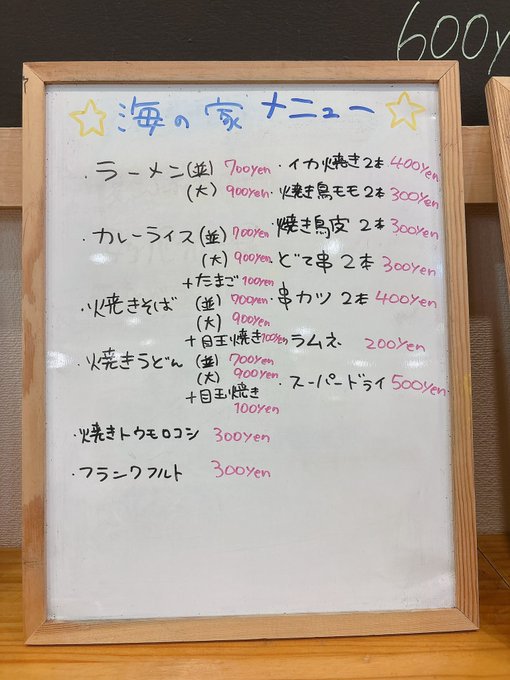 600y
☆海の家 メニュー☆
・ラーメン(並) 700yen
(大) 900yen
・カレーライス(並) 700yen
(大) 900yen
+たまご100yen
・焼きそば (並) 700yen
(大) 900yen
+目玉焼き100yen
・焼きうどん (並) 700yen
(大) 900yen
+目玉焼き
100yen
・焼きトウモロコシ 300yen
・フランクフルト 300yen
・イカ焼き2本 400yen
・焼き鳥モモ2本 300yen
・焼き鳥皮 2本 300yen
・どて串 2本 300yen
・串カツ 2本 400yen
・ラムネ 200yen
・スーパードライ 500yen